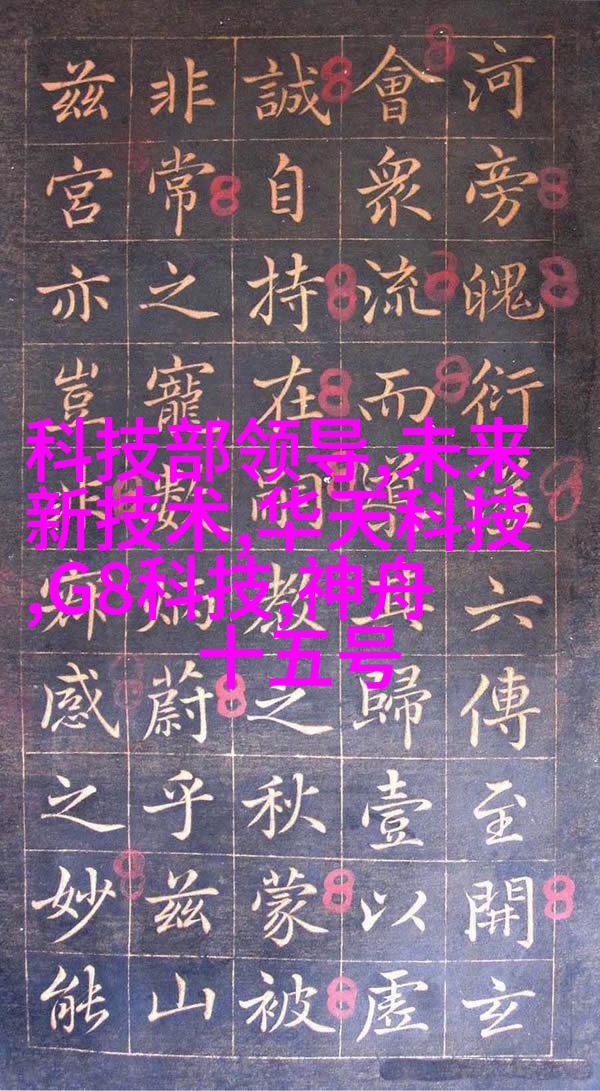 河旁魄衍六傳至開玄
會衆流而導其歸壹以虛
誠自持在嗣教之秋蒙被
非常之寵數炳蔚乎兹山
兹宮亦豈感之妙能
科技部领导,未来
新技术,华天科技
,G8科技,神舟
十五号